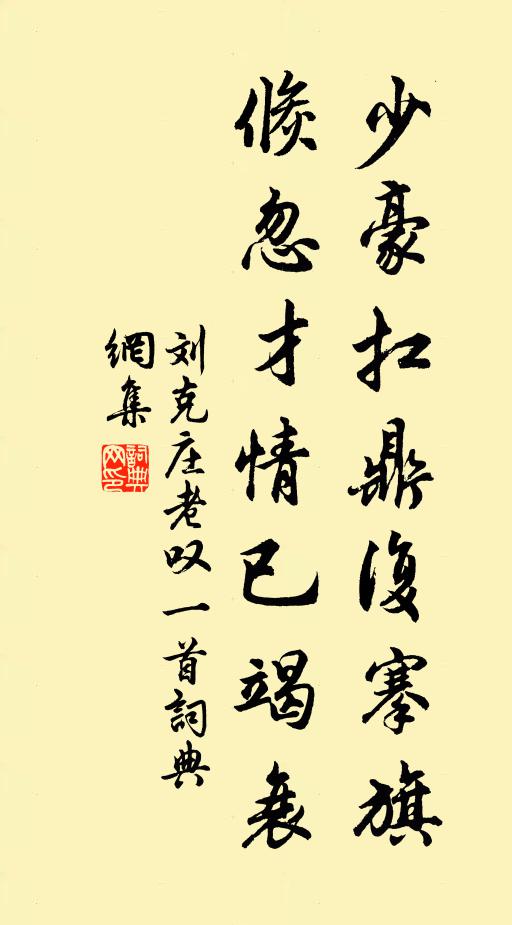 少豪扛鼎復搴旗
倏忽才情已竭衰
刘克庄老叹一首詞典
網集
詞典
网印